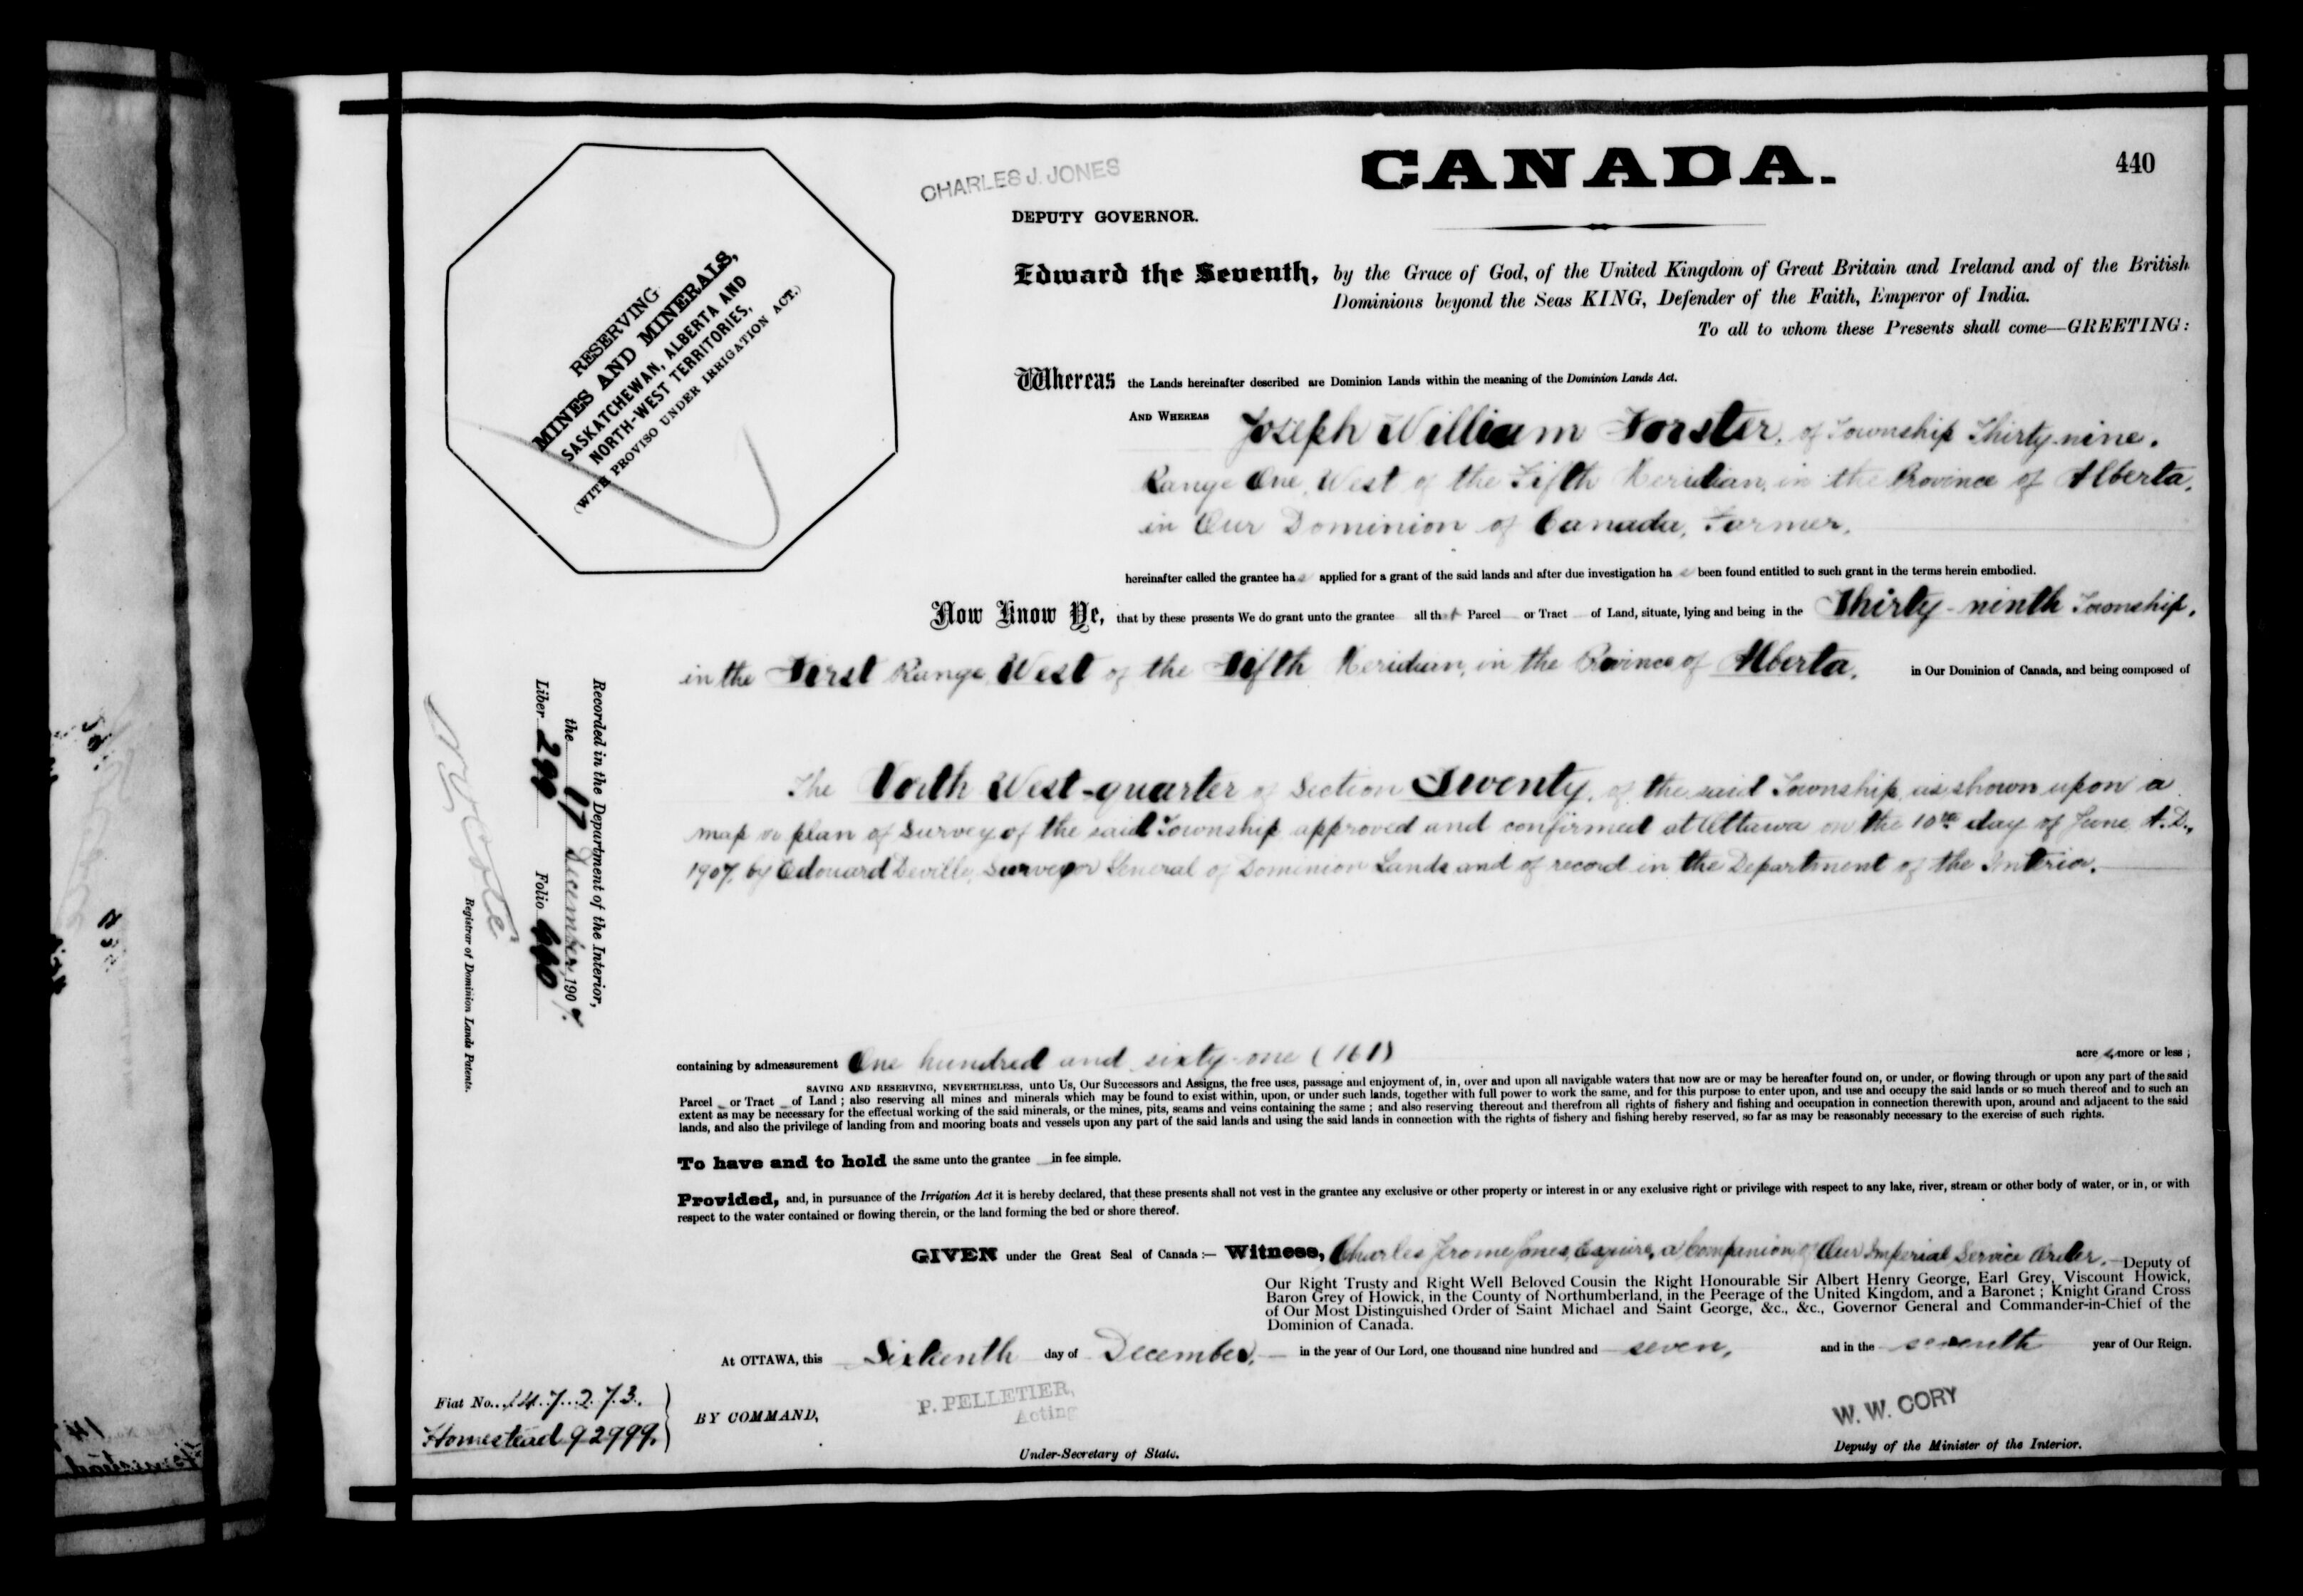 CANADA.
440
CHARLES J. JONES
DEPUTY GOVERNOR.
RESERVING
MINES AND MINERALS,
SASKATCHEWAN, ALBERTA AND
NORTH-WEST TERRITORIES,
(WITH PROVISO UNDER IRRIGATION ACT.)
Edward the Seventh, by the Grace of God, of the United Kingdom of Great Britain and Ireland and of the British
Dominions beyond the Seas KING, Defender of the Faith, Emperor of India.
To all to whom these Presents shall come—GREETING:
Whereas the Lands hereinafter described are Dominion Lands within the meaning of the Dominion Lands Act.
AND WHEREAS Joseph William Forster, of Township Thirty-nine,
Range One, West of the Fifth Meridian, in the Province of Alberta,
in Our Dominion of Canada, Farmer,
hereinafter called the grantee has applied for a grant of the said lands and after due investigation has been found entitled to such grant in the terms herein embodied.
Now Know Ye, that by these presents We do grant unto the grantee all that Parcel or Tract of Land, situate, lying and being in the Thirty-ninth Township,
in the First Range West of the Fifth Meridian, in the Province of Alberta, in Our Dominion of Canada, and being composed of
The North West-quarter of Section Twenty, of the said Township, as shown upon a
map or plan of survey of the said Township approved and confirmed at Ottawa on the 10th day of June, A.D.,
1907, by Edouard Deville, Surveyor General of Dominion Lands and of record in the Department of the Interior.
Recorded in the Department of the Interior,
the 17 December, 1907.
Liber Folio 440
Registrar of Dominion Lands Patents.
containing by admeasurement One hundred and sixty-one (161) acres, more or less ;
SAVING AND RESERVING, NEVERTHELESS, unto Us, Our Successors and Assigns, the free uses, passage and enjoyment of, in, over and upon all navigable waters that now are or may be hereafter found on, or under, or flowing through or upon any part of the said
Parcel or Tract of Land ; also reserving all mines and minerals which may be found to exist within, upon, or under such lands, together with full power to work the same, and for this purpose to enter upon, and use and occupy the said lands or so much thereof and to such an
extent as may be necessary for the effectual working of the said minerals, or the mines, pits, seams and veins containing the same ; and also reserving thereout and therefrom all rights of fishery and fishing and occupation in connection therewith upon, around and adjacent to the said
lands, and also the privilege of landing from and mooring boats and vessels upon any part of the said lands and using the said lands in connection with the rights of fishery and fishing hereby reserved, so far as may be reasonably necessary to the exercise of such rights.
To have and to hold the same unto the grantee in fee simple.
Provided, and, in pursuance of the Irrigation Act it is hereby declared, that these presents shall not vest in the grantee any exclusive or other property or interest in or any exclusive right or privilege with respect to any lake, river, stream or other body of water, or in, or with
respect to the water contained or flowing therein, or the land forming the bed or shore thereof.
GIVEN under the Great Seal of Canada :— Witness, Charles Jrome Jones, Esquire, a Companion of Our Imperial Service Order, Deputy of
Our Right Trusty and Right Well Beloved Cousin the Right Honourable Sir Albert Henry George, Earl Grey, Viscount Howick,
Baron Grey of Howick, in the County of Northumberland, in the Peerage of the United Kingdom, and a Baronet ; Knight Grand Cross
of Our Most Distinguished Order of Saint Michael and Saint George, &c., &c., Governor General and Commander-in-Chief of the
Dominion of Canada.
At OTTAWA, this Sixteenth day of December, in the year of Our Lord, one thousand nine hundred and seven, and in the seventh year of Our Reign.
Fiat No. 147273.
Homestead 92999.
BY COMMAND,
P. PELLETIER,
Acting
Under-Secretary of State.
W. W. CORY
Deputy of the Minister of the Interior.